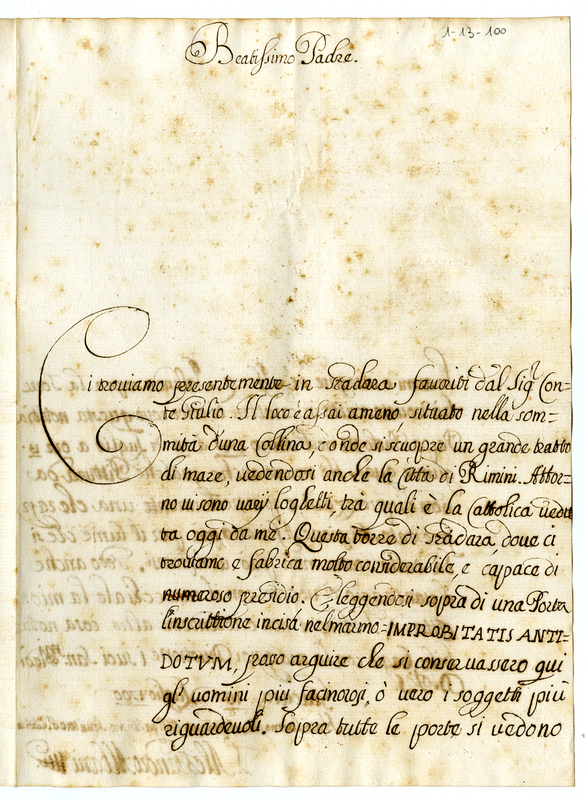 1-13-100
Beatissimo Padre.
Ci troviamo presentemente in Gradara favoriti dal Sig.r Con=
te Giulio. Il loco è assai ameno, situato nella som=
mità d'una Collina, onde si scuopre un grande tratto
di mare, vedendosi anche la Città di Rimini. Attor=
no vi sono varij loghetti, trà quali è la Cattolica vedu
ta oggi da me. Questa torre di Gradara, dove ci
troviamo è fabrica molto considerabile, e capace di
numeroso presidio. E leggendosi sopra di una Porta
l'inscrittione incisa nel marmo = IMPROBITATIS ANTI=
DOTVM, posso arguire che si conservassero qui
gl' uomini più facinorosi, ò vero i soggetti più
riguardevoli. Sopra tutte le porte si vedono